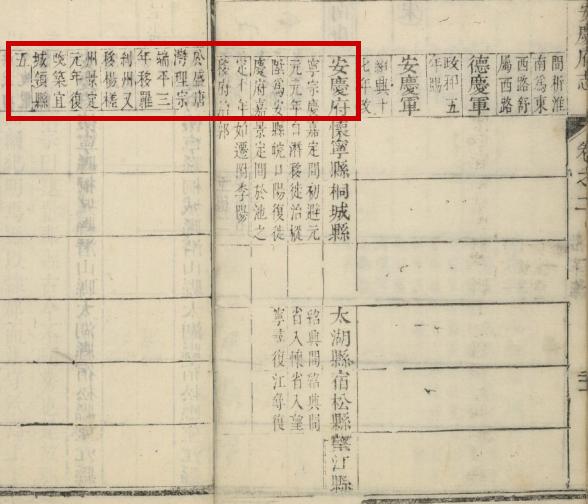 間析淮
南為東
西路舒
屬西路
德慶軍
政和五
年賜
安慶軍
紹興十
七年改
安慶府 懷寧縣 桐城縣
寧宗慶 嘉定間 初避元
元元年 自潛移 徙治樅
陞為安 縣皖口 陽復徙
慶府嘉 景定間 於池之
定十年 如遷附 李陽
移府治 郭
太湖縣 宿松縣 望江縣
紹興間 紹興間
省入懷 省入望
寧尋復 江尋復
於盛唐
灣理宗
端平三
年移羅
刹州又
移楊槎
州景定
元年復
改築宜
城領縣
五